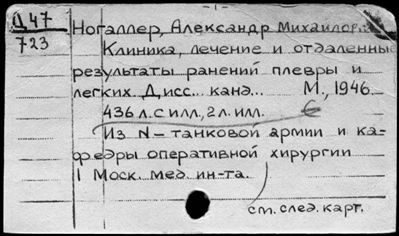 - 1 -
Д 47
723
Ногаллер, Александр Михайлов.
Клиника, лечение и отдаленные
результаты ранений плевры и
легких. Дисс... канд... М., 1946.
436 л. с илл., 2 л. илл.
Из N - танковой армии и ка-
федры оперативной хирургии
I Моск. мед. ин-та.
см. след. карт.